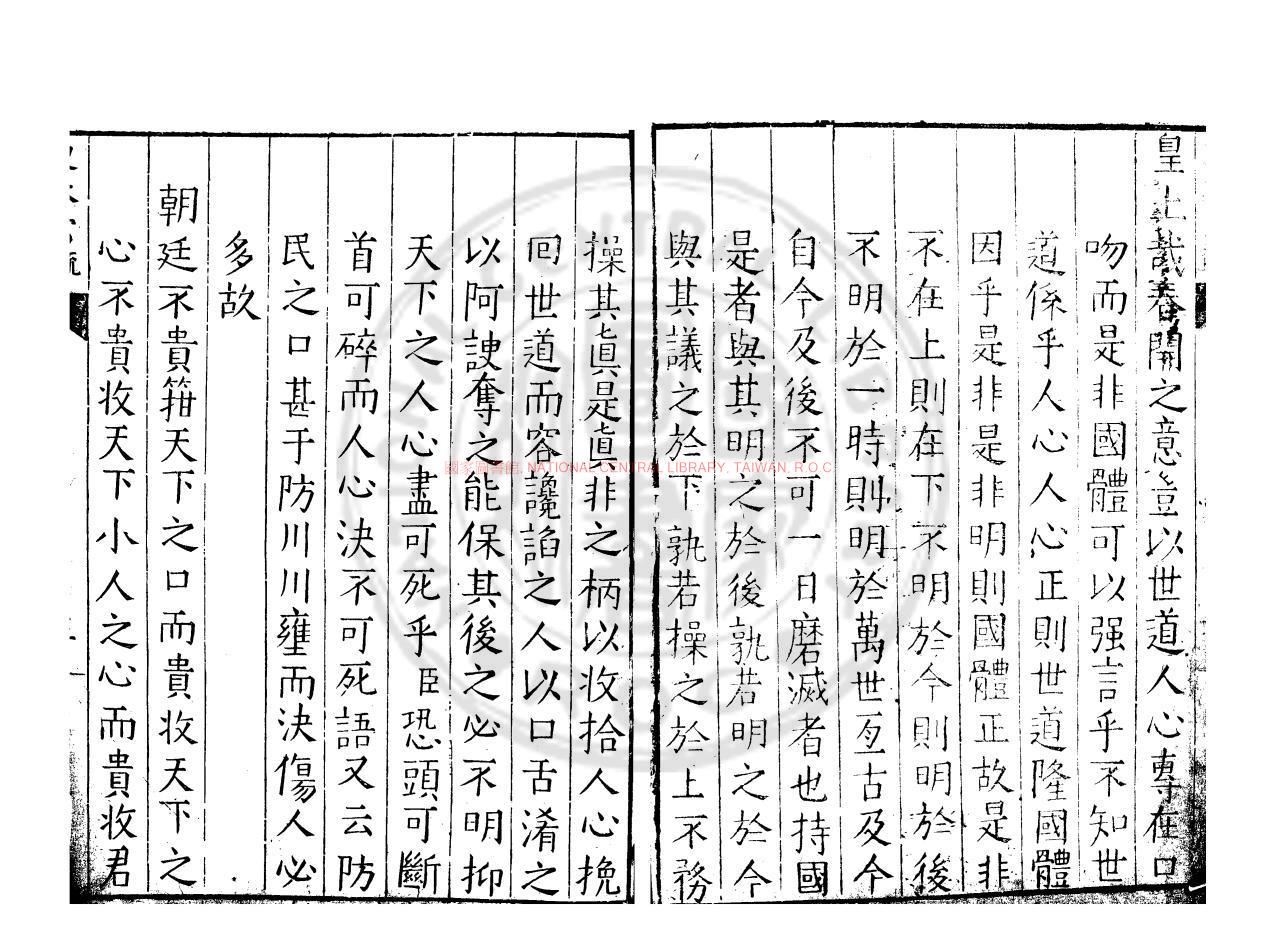 皇上識春開之意豈以世道人心專在口
吻而是非國體可以强言乎不知世
道係乎人心人心正則世道隆國體
因乎是非是非明則國體正故是非
不在上則在下不明於今則明於後
不明於一時則明於萬世亙古及今
自今及後不可一日磨滅者也持國
是者與其明之於後孰若明之於今
與其議之於下孰若操之於上不務
操其眞是眞非之柄以收拾人心挽
回世道而容讒諂之人以口舌淆之
以阿諛奪之能保其後之必不明抑
天下之人心盡可死乎臣恐頭可斷
首可碎而人心決不可死語又云防
民之口甚于防川川壅而決傷人必
多故
朝廷不貴箝天下之口而貴收天下之
心不貴收天下小人之心而貴收君
國家圖書館, NATIONAL CENTRAL LIBRARY, TAIWAN, R.O.C